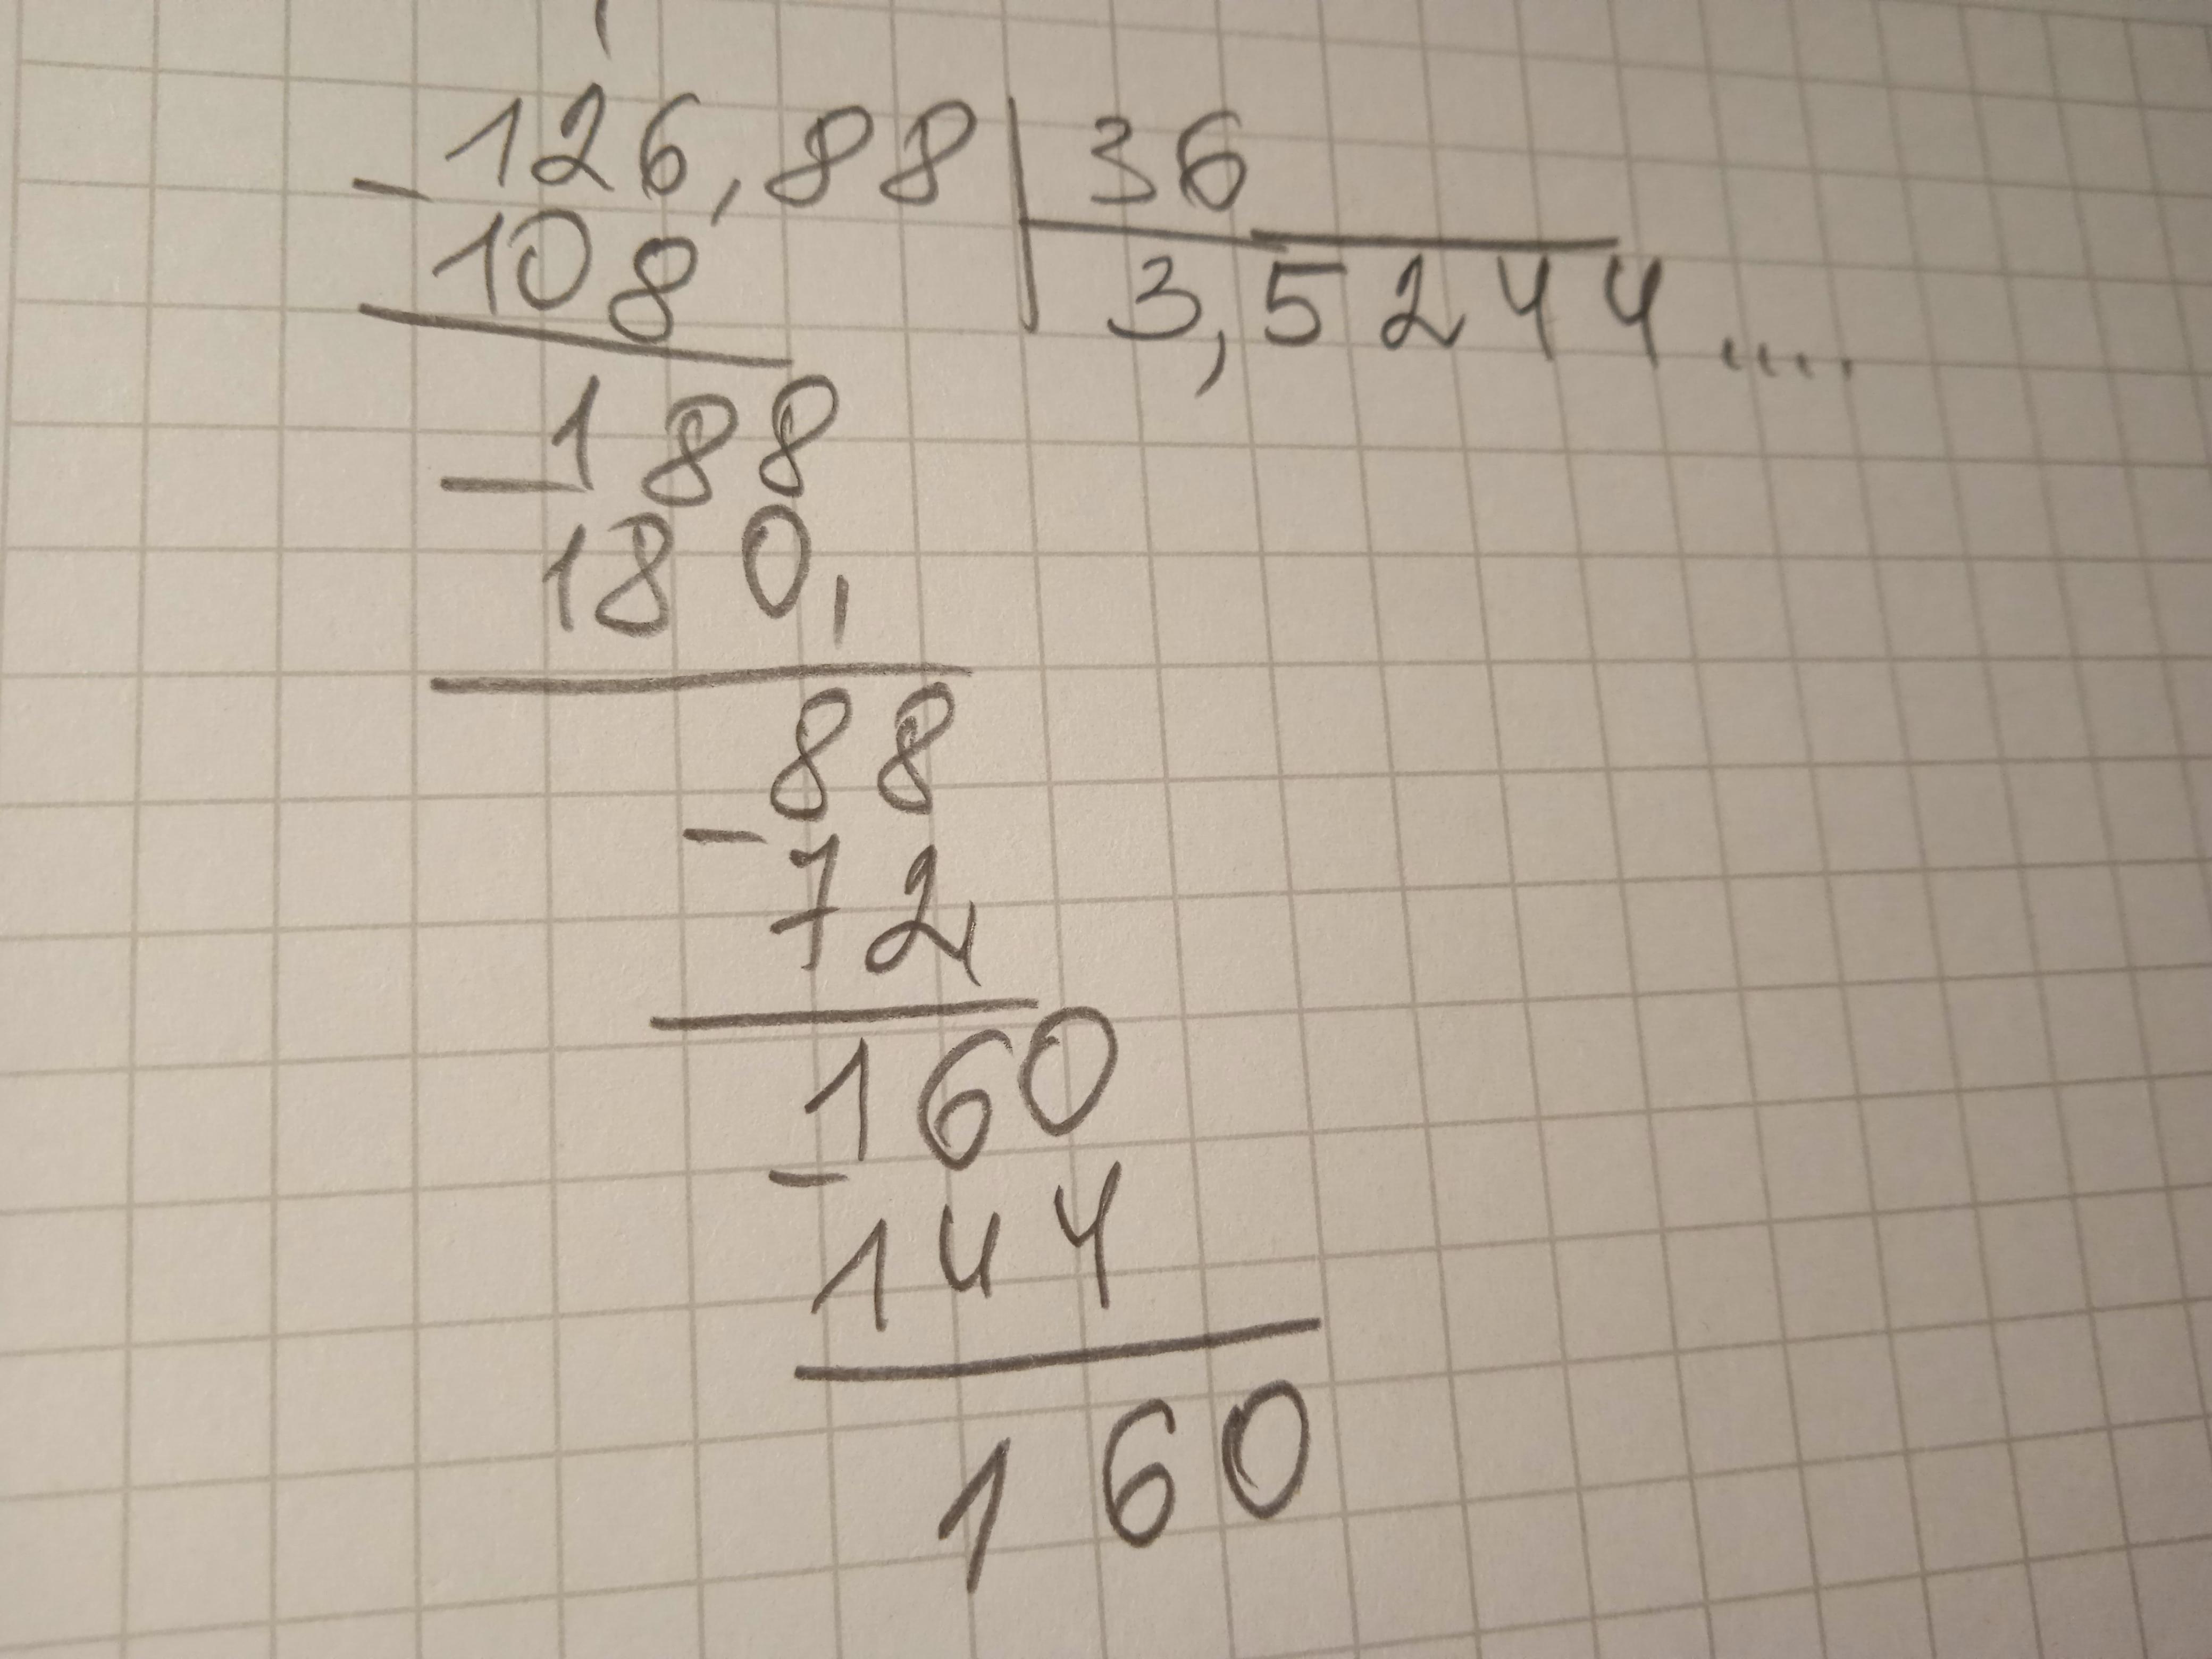 -126,88 | 36
108 3,5244....
-188
180,
88
-72
160
-144
160